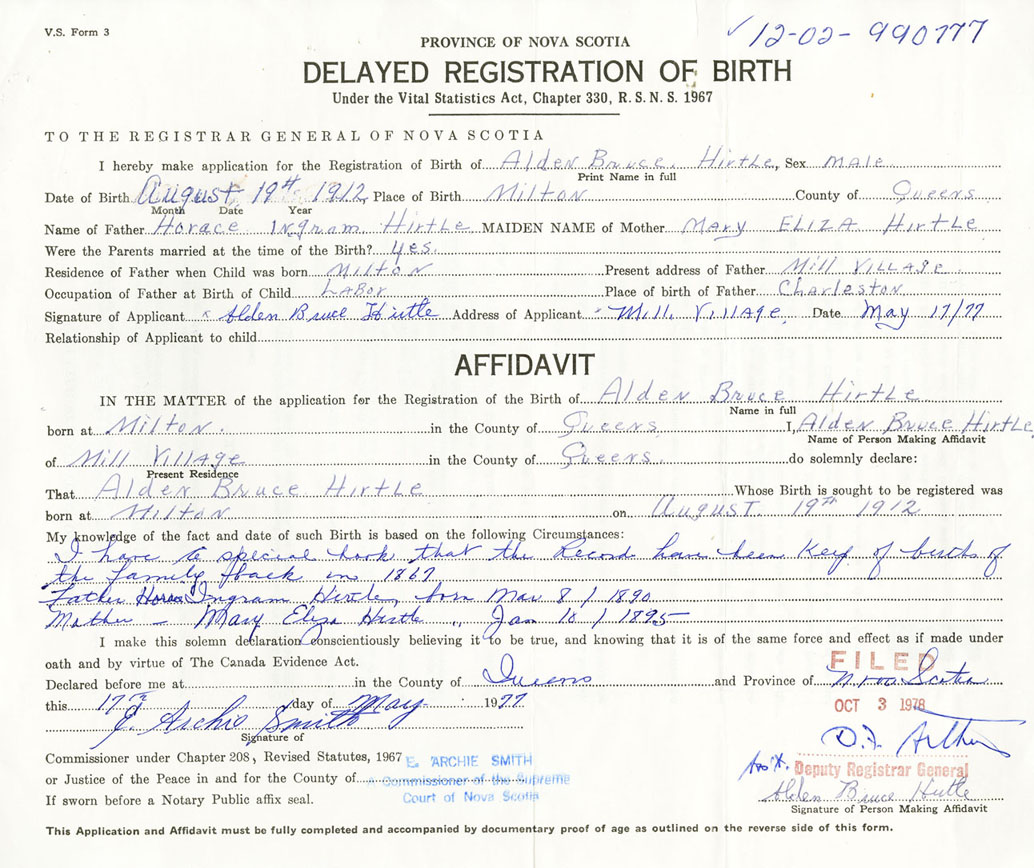 V.S. Form 3
12-02-990777
PROVINCE OF NOVA SCOTIA
DELAYED REGISTRATION OF BIRTH
Under the Vital Statistics Act, Chapter 330, R.S.N.S. 1967
TO THE REGISTRAR GENERAL OF NOVA SCOTIA
I hereby make application for the Registration of Birth of Alden Bruce Hirtle, Sex male
Print Name in full
Date of Birth August 19th 1912 Place of Birth Milton County of Queens
Month Date Year
Name of Father Horace Ingram Hirtle MAIDEN NAME of Mother Mary ELIZA Hirtle
Were the Parents married at the time of the Birth? yes.
Residence of Father when Child was born Milton Present address of Father Mill Village
Occupation of Father at Birth of Child LABOR Place of birth of Father Charleston
Signature of Applicant x Alden Bruce Hirtle Address of Applicant Mill Village Date May 17/77
Relationship of Applicant to child
AFFIDAVIT
IN THE MATTER of the application for the Registration of the Birth of Alden Bruce Hirtle
Name in full
born at Milton. in the County of Queens I, Alden Bruce Hirtle
Name of Person Making Affidavit
of Mill Village in the County of Queens. do solemnly declare:
Present Residence
That Alden Bruce Hirtle Whose Birth is sought to be registered was
born at Milton on August 19th 1912
My knowledge of the fact and date of such Birth is based on the following Circumstances:
I have a special book that the Record have been Keep of births of
the family back in 1867
Father Horace Ingram Hirtle, born Mar 8/1890
Mother - Mary Eliza Hirtle " Jan 16/1895
I make this solemn declaration conscientiously believing it to be true, and knowing that it is of the same force and effect as if made under
oath and by virtue of The Canada Evidence Act.
FILED
Declared before me at in the County of Queens and Province of Nova Scotia
OCT 3 1978
this 17th day of May 1977
E. Archie Smith
Signature of
D.F. Arthur
Commissioner under Chapter 208, Revised Statutes, 1967 E. ARCHIE SMITH
Deputy Registrar General
or Justice of the Peace in and for the County of A Commissioner of the Supreme
Alden Bruce Hirtle
If sworn before a Notary Public affix seal. Court of Nova Scotia
Signature of Person Making Affidavit
This Application and Affidavit must be fully completed and accompanied by documentary proof of age as outlined on the reverse side of this form.